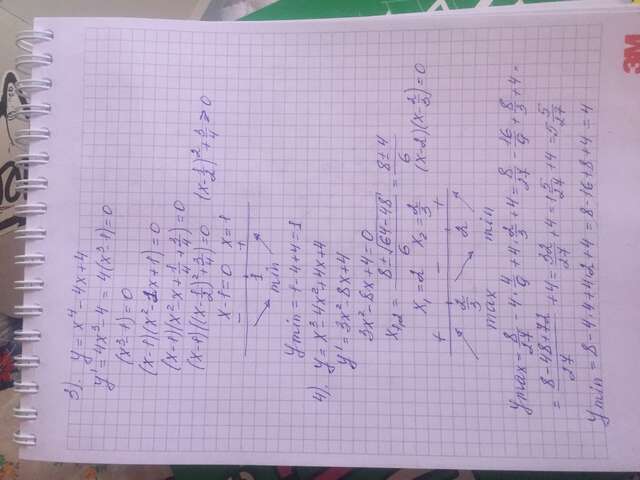 3). y = x⁴ - 4x + 4
y' = 4x³ - 4 = 4(x³ - 1) = 0
(x³ - 1) = 0
(x - 1)(x² - x + 1) = 0
(x + 1)(x² - x + 1/4 + 3/4) = 0
(x + 1)((x - 1/2)² + 3/4) = 0 (x - 1/2)² + 3/4 ≥ 0
x - 1 = 0 x = 1
- +
1
min
y min = 1 - 4 + 4 = 1
4). y = x³ - 4x² + 4x + 4
y' = 3x² - 8x + 4
3x² - 8x + 4 = 0
x₁,₂ = (8 ± √(64 - 48))/6 = (8 ± 4)/6
x₁ = 2 x₂ = 2/3 (x - 2)(x - 2/3) = 0
+ - +
2/3 2
max min
y max = 8/27 - 4·4/9 + 4·2/3 + 4 = 8/27 - 16/9 + 8/3 + 4 =
= (8 - 48 + 72)/27 + 4 = 32/27 + 4 = 1 5/27 + 4 = 5 5/27
y min = 8 - 4·4 + 4·2 + 4 = 8 - 16 + 8 + 4 = 4
3M